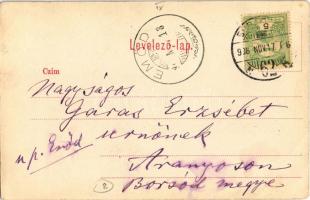 Levelező-lap.
Czim
Nagyságos
Garas Erzsébet
urnőnek
u. p. Emőd
Aranyoson
Borsod megye